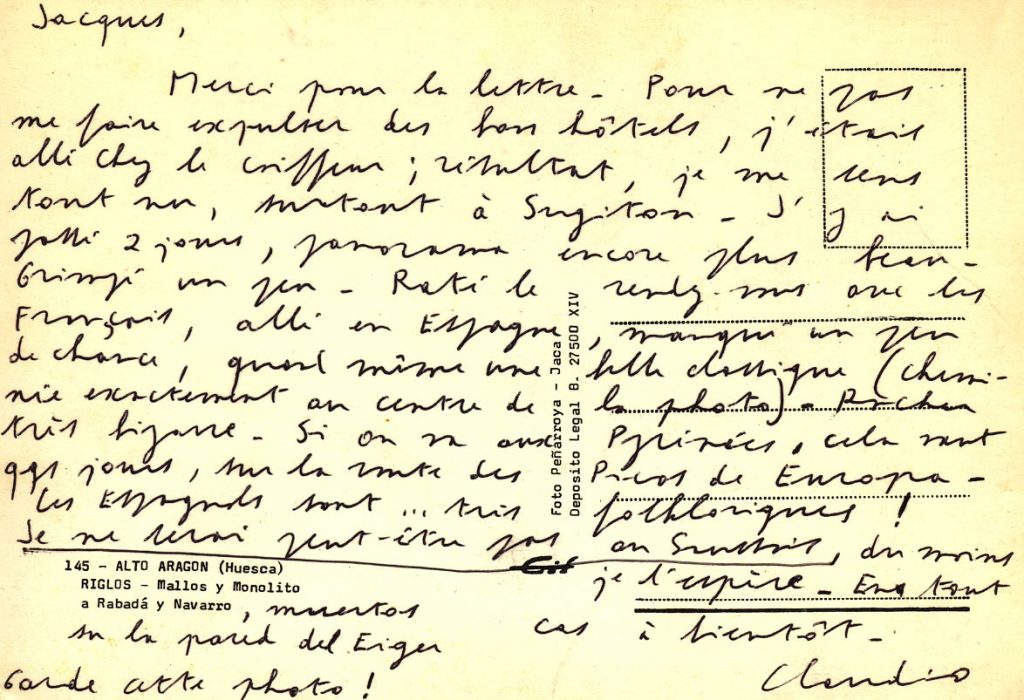 Jacques,
Merci pour la lettre - Pour ne pas
me faire expulser des bons hôtels, j'étais
allé chez le coiffeur ; résultat, je me sens
tout nu, surtout à Sugiton - J'y ai
passé 2 jours, panorama encore plus beau -
Grimpé un peu - Raté le rendez-vous avec les
Français, allé en Espagne, manqué un peu
de chance, quand même une belle classique (chemi-
née exactement au centre de la photo) - Rocher
très bizarre - Si on va aux Pyrénées, cela vaut
qqs jours, sur la route des Picos de Europa -
Les Espagnols sont ... très folkloriques !
Je ne serai peut-être pas au, du moins
je l'espère - En tout
cas à bientôt -
Claudio
145 - ALTO ARAGON (Huesca)
RIGLOS - Mallos y Monolito
a Rabadá y Navarro, muertos
en la pared del Eiger
Garde cette photo !
Foto Peñarroya - Jaca
Deposito Legal B. 27500 XIV